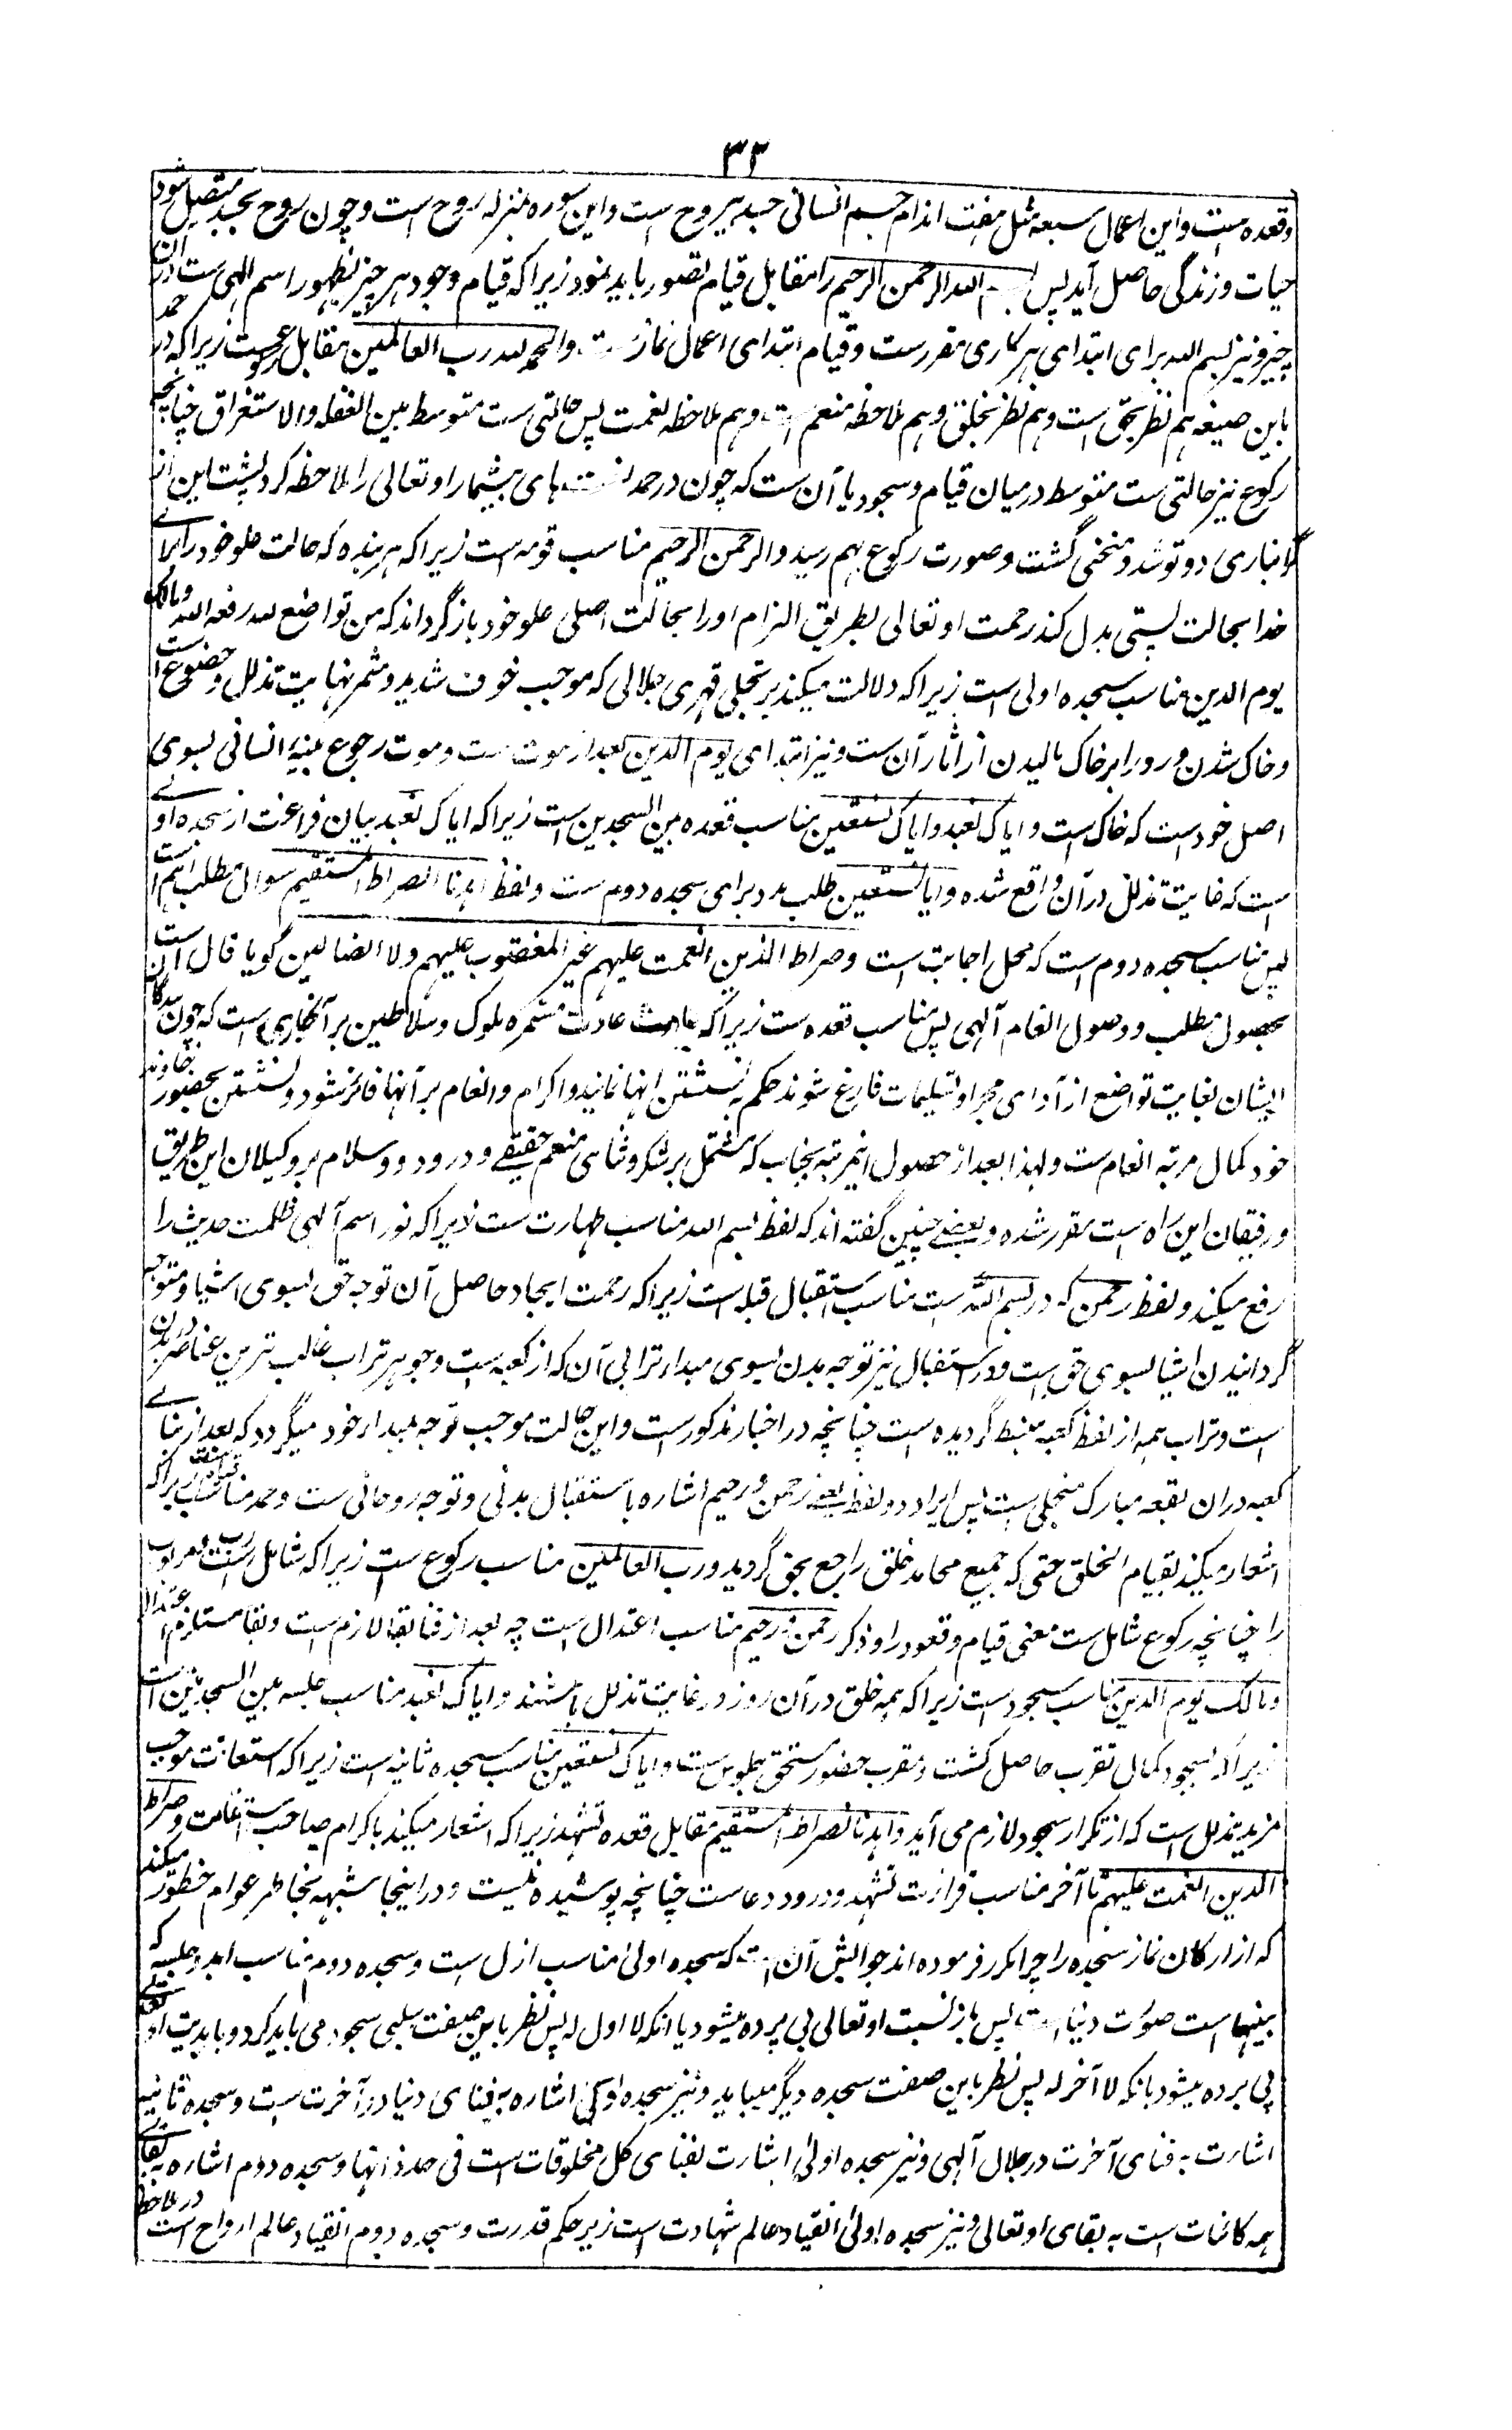 ۳۳
وقعده است واین اعمال سبعه مثل هفت اندام جسم انسانی جسد بیروح است واین سوره بمنزله روح است وچون روح بجسد متصل شود
حیات وزندگی حاصل آید پس بسم الله الرحمن الرحیم را مقابل قیام تصور باید نمود زیراکه قیام وجود هر چیز بظهور اسم الهی ست دران
چیز ونیز بسم الله برای ابتدای هر کاری مقررست وقیام ابتدای اعمال نمازست والحمد لله رب العالمین مقابل رکوعست زیراکه در حمد
باین صیغه هم نظر بحق است وهم نظر بخلق وهم ملاحظه منعم است وهم ملاحظه نعمت پس حالتی ست متوسط بین الغفله والاستغراق چنانچه
رکوع نیز حالتی ست متوسط درمیان قیام وسجود یا آن ست که چون درحمد نعمت های بیشمار اوتعالی را ملاحظه کرد پشت این از
گرانباری دوتو شد ومنحنی گشت وصورت رکوع بهم رسید والرحمن الرحیم مناسب قومه است زیراکه هر بنده که حالت علو خود را برای
خدا بحالت پستی بدل کند رحمت اوتعالی بطریق التزام اورا بحالت اصلی علو خود باز گرداند که من تواضع لله رفعه الله ومالک
یوم الدین مناسب سجده اولی است زیراکه دلالت میکند بر تجلی قهری جلالی که موجب خوف شدید ومثمر نهایت تذلل وخضوع است
وخاک شدن ورو را بر خاک مالیدن از آثار آن ست ونیز ابتدای یوم الدین بعد از موت ست وموت رجوع بنیه انسانی بسوی
اصل خود است که خاک است وایاک نعبد وایاک نستعین مناسب قعده بین السجدین است زیراکه ایاک نعبد بیان فراغت از سجده اولی
است که غایت تذلل درآن واقع شده وایاک نستعین طلب مدد برای سجده دوم ست ولفظ اهدنا الصراط المستقیم سوال مطلب اهم است
پس مناسب سجده دوم است که محل اجابت است وصراط الذین انعمت علیهم غیر المغضوب علیهم ولا الضالین گویا فال آن است
بحصول مطلب ووصول انعام الهی پس مناسب قعده ست زیراکه عادت مستمره ملوک وسلاطین برآن جاری ست که چون بندگان
ایشان بغایت تواضع از آدای مجرا وتسلیمات فارغ شوند حکم به نشستن اینها نمایند واکرام وانعام برآنها فائز شود ونشستن بحضور خداوند
خود کمال مرتبه انعام ست ولهذا بعد از حصول اینمرتبه بخاب که مشتمل بر شکر وثنای منعم حقیقی ودرود وسلام بر وکیلان این طریق
ورفیقان این راه ست مقرر شده وبعضی چنین گفته اند که لفظ بسم الله مناسب طهارت ست زیراکه نور اسم الهی ظلمت حدث را
رفع میکند ولفظ رحمن که در بسم الله ست مناسب استقبال قبله است زیراکه رحمت ایجاد حاصل آن توجه حق بسوی اشیا ومتوجه
گردانیدن اشیا بسوی حق است ودر استقبال نیز توجه بدن بسوی مبداء ترابی آن که از کعبه است وجوهر تراب غالب ترین عناصر در بدن
است وتراب همه از لفظ کعبه منبسط گردیده است چنانچه در اخبار مذکورست واین حالت موجب توجه بمبداء خود میگردد که بعد از بنای
کعبه دران بقعه مبارک متجلی ست پس ایراد دو لفظ یعنی رحمن ورحیم اشاره باستقبال بدنی وتوجه روحانی ست وحمد مناسب قیام ست زیراکه
اشعار میکند بقیام الخلق حتی که جمیع محامد خلق راجع بحق گردید ورب العالمین مناسب رکوع ست زیراکه شامل ست رب ومربوب
را چنانچه رکوع شامل ست معنی قیام وقعود را وذکر رحمن ورحیم مناسب اعتدال است چه بعد از فنا بقا لازم است وبقا مستلزم اعتدال
ومالک یوم الدین مناسب سجود ست زیراکه همه خلق درآن روز در غایت تذلل باشند وایاک نعبد مناسب جلسه بین السجدتین است
زیراکه بسجود کمال تقرب حاصل گشت ومقرب حضور مستحق جلوس ست وایاک نستعین مناسب سجده ثانیه است زیراکه استعانت موجب
مزید تذلل است که از تکرار سجود لازم می آید واهدنا الصراط المستقیم مقابل قعده تشهد زیراکه اشعار میکند باکرام صاحب استقامت وصراط
الذین انعمت علیهم تا آخر مناسب قراءت تشهد ودرود ودعاست چنانچه پوشیده نیست ودر اینجا شبهه بخاطر عوام خطور میکند
که از ارکان نماز سجده را چرا مکرر فرموده اند جوابش آن است که سجده اولی مناسب ازل ست وسجده دوم مناسب ابد وجلسه که
بینهما است صورت دنیا است پس باز نسبت اوتعالی پی برده میشود یا آنکه لا اول له پس نظر باین صفت سلبی سجود می باید کرد وبابدیت اوتعالی
پی برده میشود بآنکه لا آخر له پس نظر باین صفت سجده دیگر میباید ونیز سجده اولی اشاره به فنای دنیا در آخرت ست وسجده ثانیه
اشارت به فنای آخرت در جلال الهی ونیز سجده اولی اشارت بفنای کل مخلوقات است فی حد ذاتها وسجده دوم اشاره به بقای
همه کائنات است به بقای اوتعالی ونیز سجده اولی انقیاد عالم شهادت است زیر حکم قدرت وسجده دوم انقیاد عالم ارواح است در ملاحظه